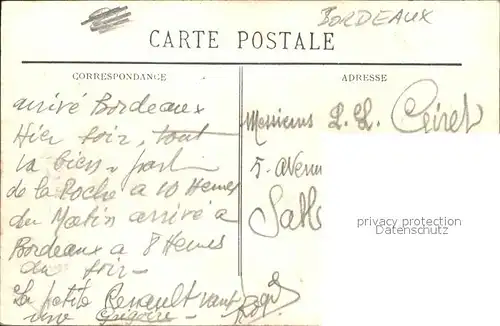 BORDEAUX
CARTE POSTALE
CORRESPONDANCE
ADRESSE
arrivé Bordeaux
Hier soir, tout
va bien - parti
de la Roche a 10 Heures
du Matin arrivé a
Bordeaux a 8 Heures
du soir -
La petite Renault vaut
une Grégoire -
Messieurs L. L.
5. Avenu
Sabl
privacy protection
Datenschutz